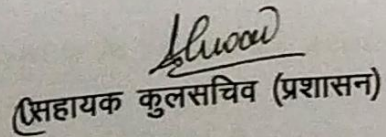 सहायक कुलसचिव (प्रशासन)